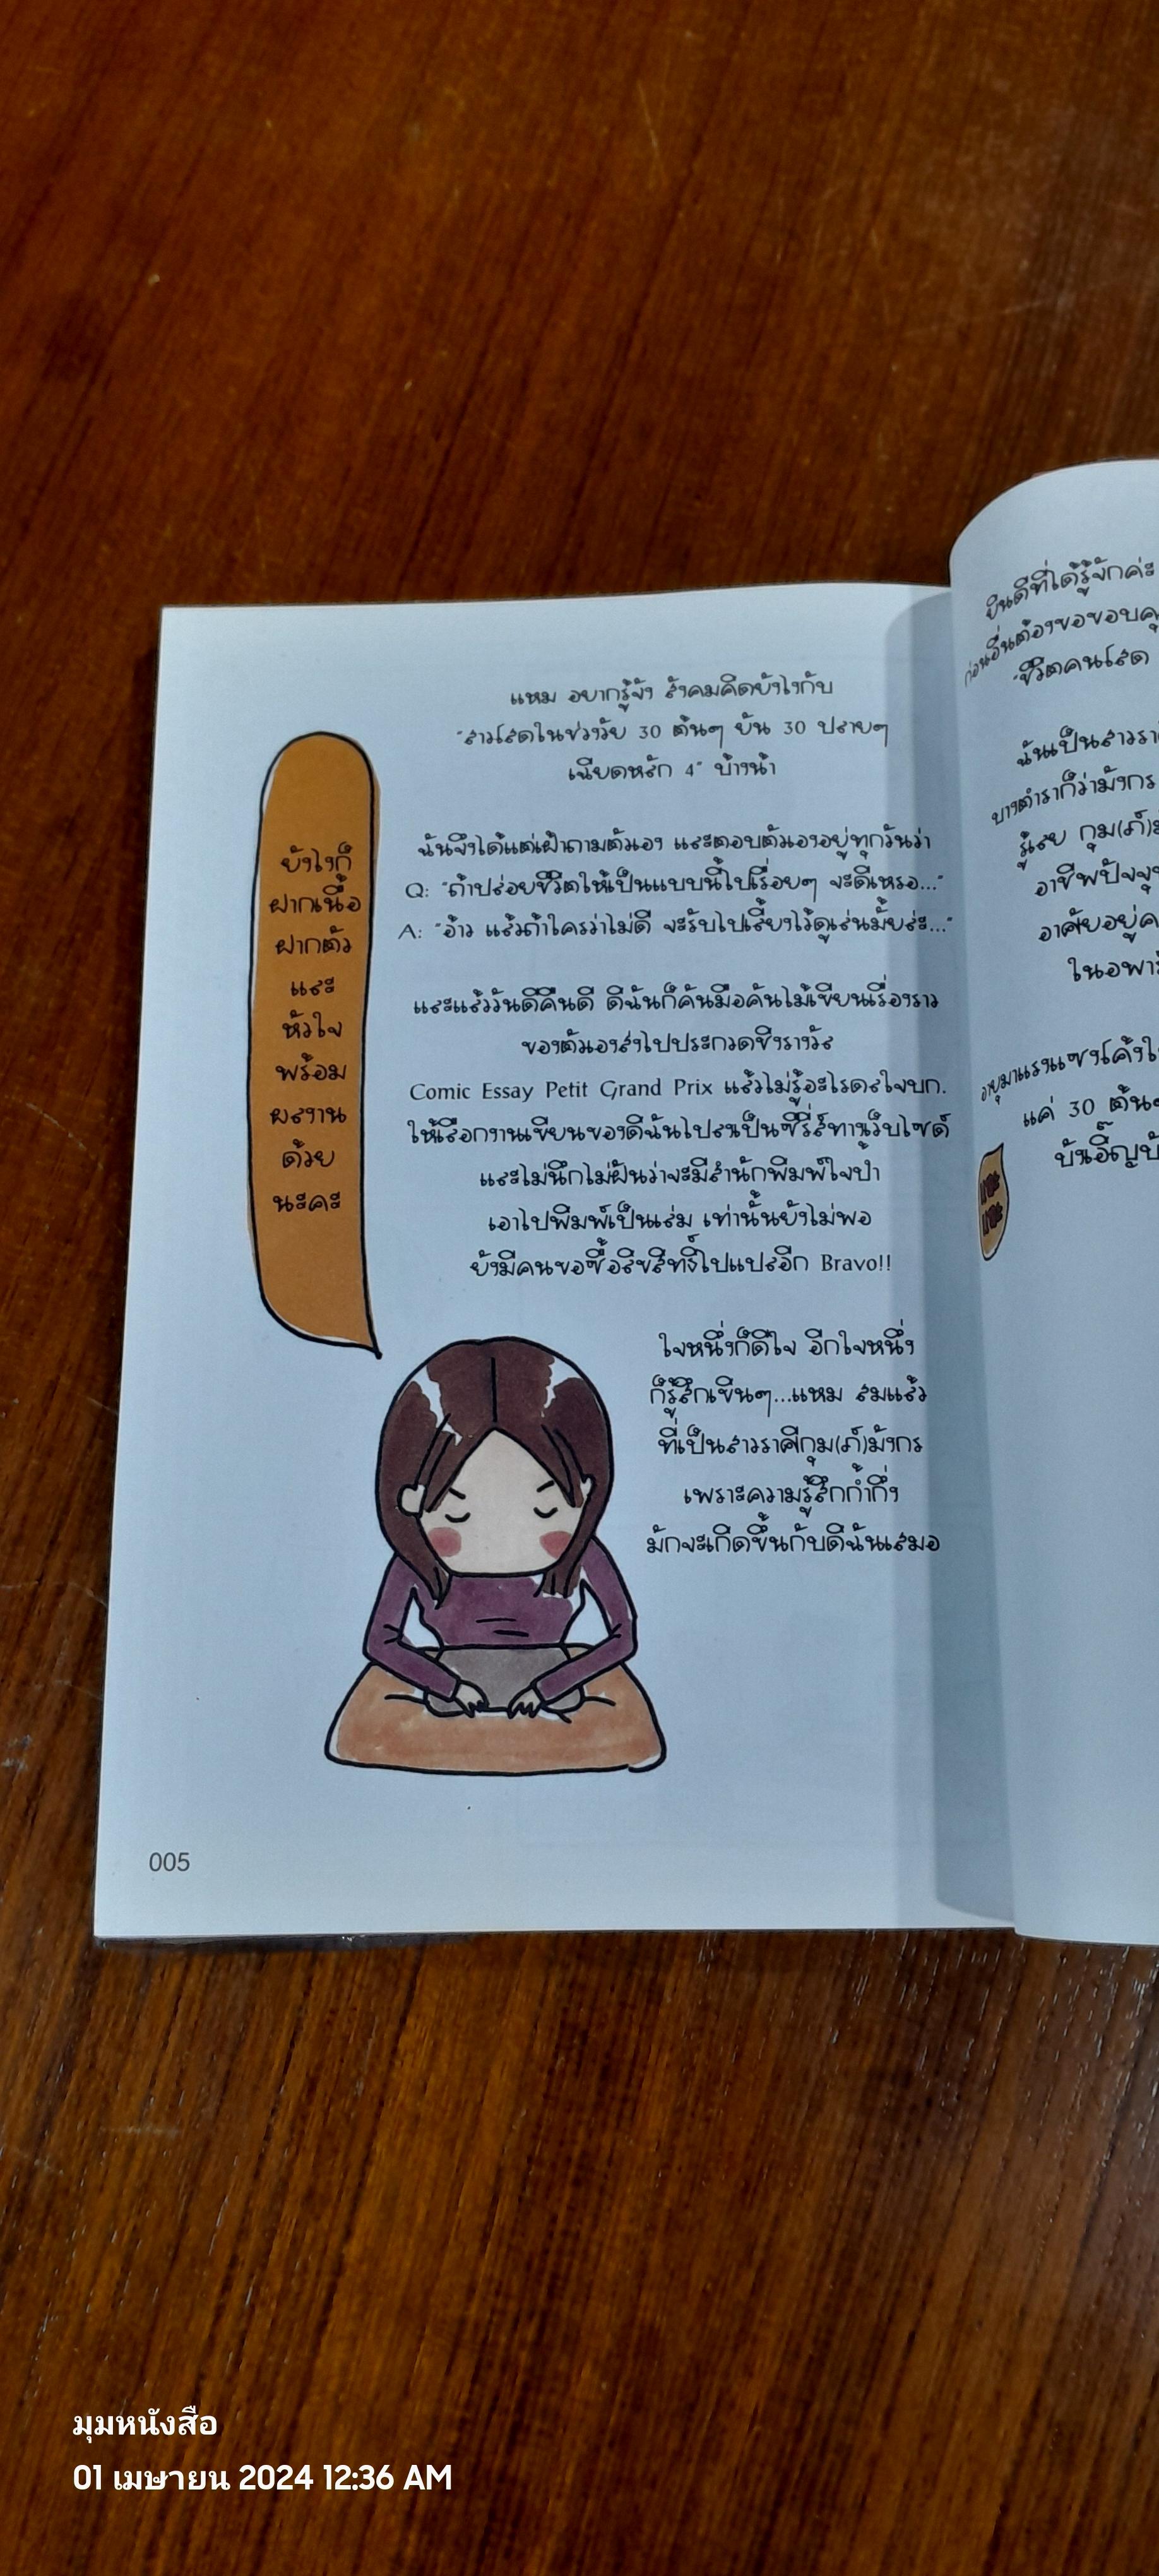 แหม อยากรู้จัง สังคมคิดยังไงกับ
"สาวโสดในช่วงวัย 30 ต้นๆ ยัน 30 ปลายๆ
เฉียดหลัก 4" บ้างน้า
ฉันจึงได้แต่เฝ้าถามตัวเอง และตอบตัวเองอยู่ทุกวันว่า
Q: "ถ้าปล่อยชีวิตให้เป็นแบบนี้ไปเรื่อยๆ จะดีเหรอ..."
A: "อ้าว แล้วถ้าใครว่าไม่ดี จะรับไปเลี้ยงไว้ดูเล่นมั้ยล่ะ..."
และแล้ววันดีคืนดี ดีฉันก็คันมือคันไม้เขียนเรื่องราว
ของตัวเองส่งไปประกวดชิงรางวัล
Comic Essay Petit Grand Prix แล้วไม่รู้อะไรดลใจบก.
ให้เลือกงานเขียนของดีฉันไปลงเป็นซีรี่ส์ทางเว็บไซต์
และไม่นึกไม่ฝันว่าจะมีสำนักพิมพ์ใจป้ำ
เอาไปพิมพ์เป็นเล่ม เท่านั้นยังไม่พอ
ยังมีคนขอซื้อลิขสิทธิ์ไปแปลอีก Bravo!!
ใจหนึ่งก็ดีใจ อีกใจหนึ่ง
ก็รู้สึกเขินๆ...แหม สมแล้ว
ที่เป็นสาวราศีกุม(ภ์)มังกร
เพราะความรู้สึกก้ำกึ่ง
มักจะเกิดขึ้นกับดีฉันเสมอ
ยังไงก็
ฝากเนื้อ
ฝากตัว
และ
หัวใจ
พร้อม
ผลงาน
ด้วย
นะคะ
005
ยินดีที่ได้รู้จักค่ะ
ก่อนอื่นต้องขอขอบคุ
"ชีวิตคนโสด
ฉันเป็นสาวรา
บางตำราก็ว่ามังกร
รู้เลย กุม(ภ์)ม
อาชีพปัจจุ
อาศัยอยู่ค
ในอพาร์
อายุมาแรงแซงโค้งใ
แค่ 30 ต้นๆ
แฮะ
แฮะ
มุมหนังสือ
01 เมษายน 2024 12:36 AM